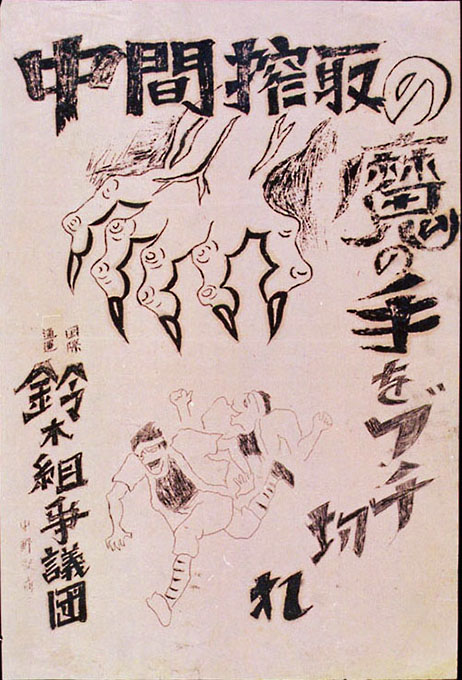 中間搾取の
魔の手をブチ
切
れ
国際
通運
鈴木組争議団